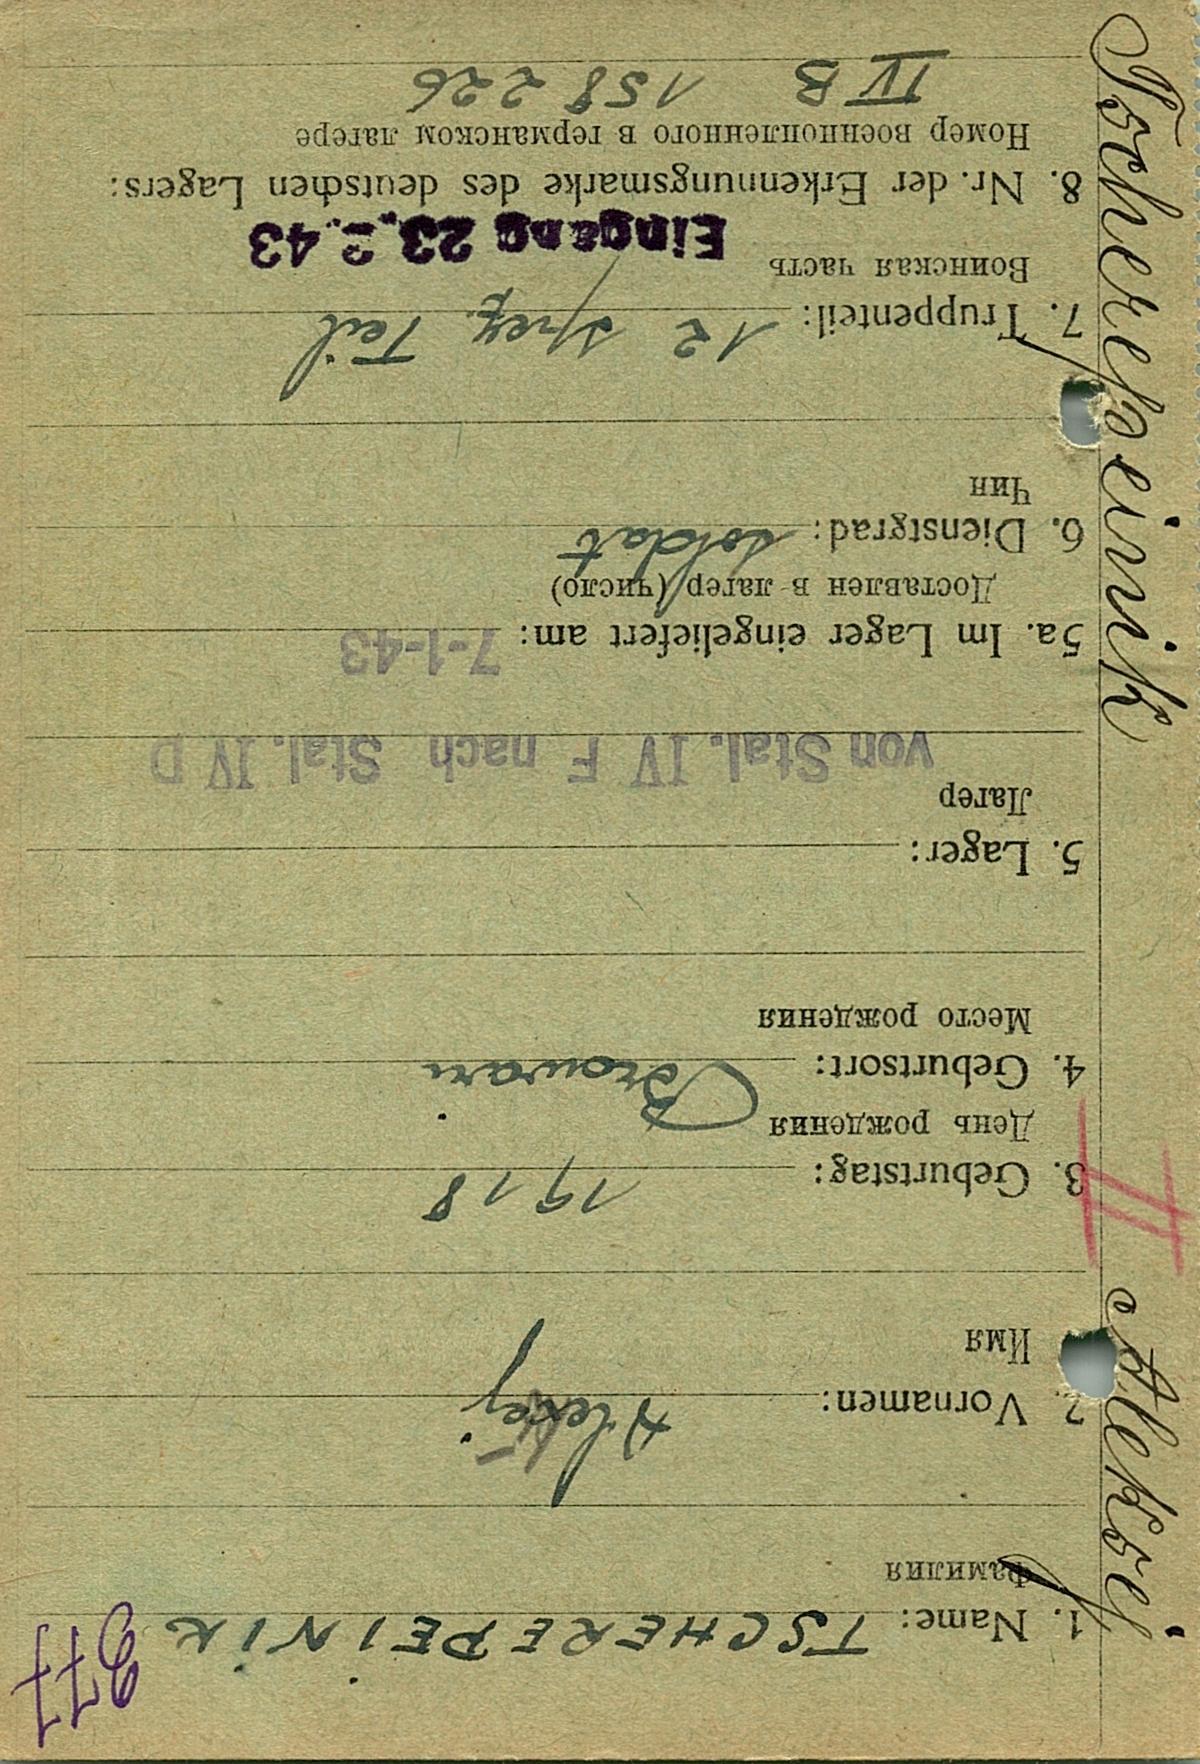 977
1. Name: TSCHEREPEINIK
Фамилия
2. Vornamen: Aleksej
Имя
3. Geburtstag: 1918
День рождения
4. Geburtsort: Browari
Место рождения
5. Lager:
Лагер
von Stal. IV F nach Stal. IV D
5a. Im Lager eingeliefert am: 7-1-43
Доставлен в лагер (число)
6. Dienstgrad: Soldat
Чин
7. Truppenteil: 12 spez. Teil
Воинская часть
Eingang 23.2.43
8. Nr. der Erkennungsmarke des deutschen Lagers:
Номер военнопленного в германском лагере
IV B 158 226
Tscherepeinik
II
Aleksej